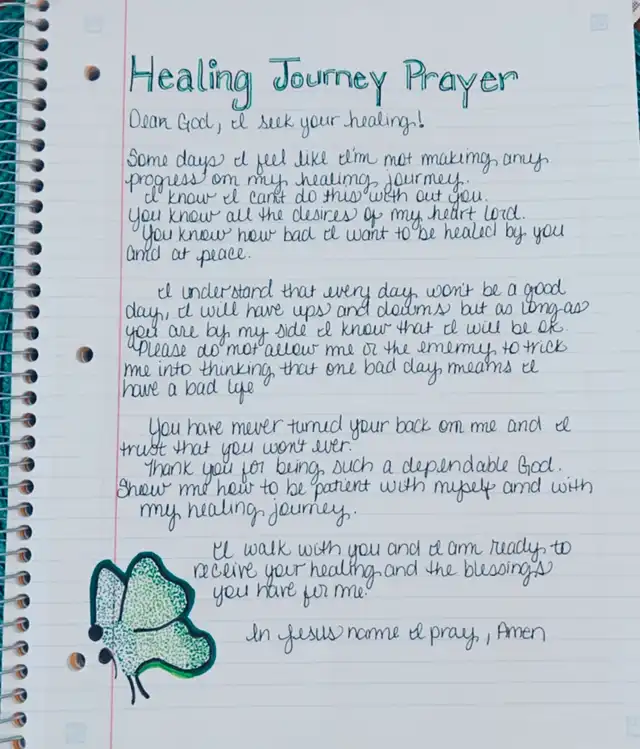 Healing Journey Prayer
Dear God, I seek your healing!
Some days I feel like I'm not making any
progress on my healing journey.
I know I can't do this with out you.
You know all the desires of my heart Lord.
You know how bad I want to be healed by you
and at peace.
I understand that every day won't be a good
day, I will have ups and downs but as long as
you are by my side I know that I will be ok.
Please do not allow me or the enemy to trick
me into thinking that one bad day means I
have a bad life
You have never turned your back on me and I
trust that you won't ever.
Thank you for being such a dependable God.
Show me how to be patient with myself and with
my healing journey.
I walk with you and I am ready to
receive your healing and the blessings
you have for me.
In Jesus name I pray, Amen